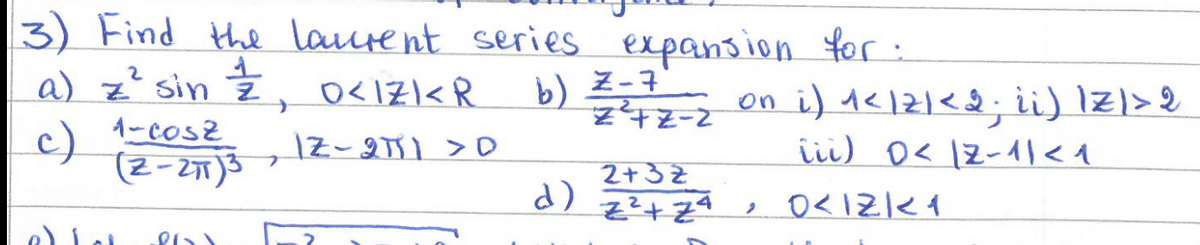 3) Find the laurent series expansion for:
a) z² sin 1/z, 0<|z|<R b) z-7/z²+z-2 on i) 1<|z|<2; ii) |z|>2
c) 1-cosz/(z-2π)³, |z-2π|>0 iii) 0<|z-1|<1
d) 2+3z/z²+z⁴, 0<|z|<1